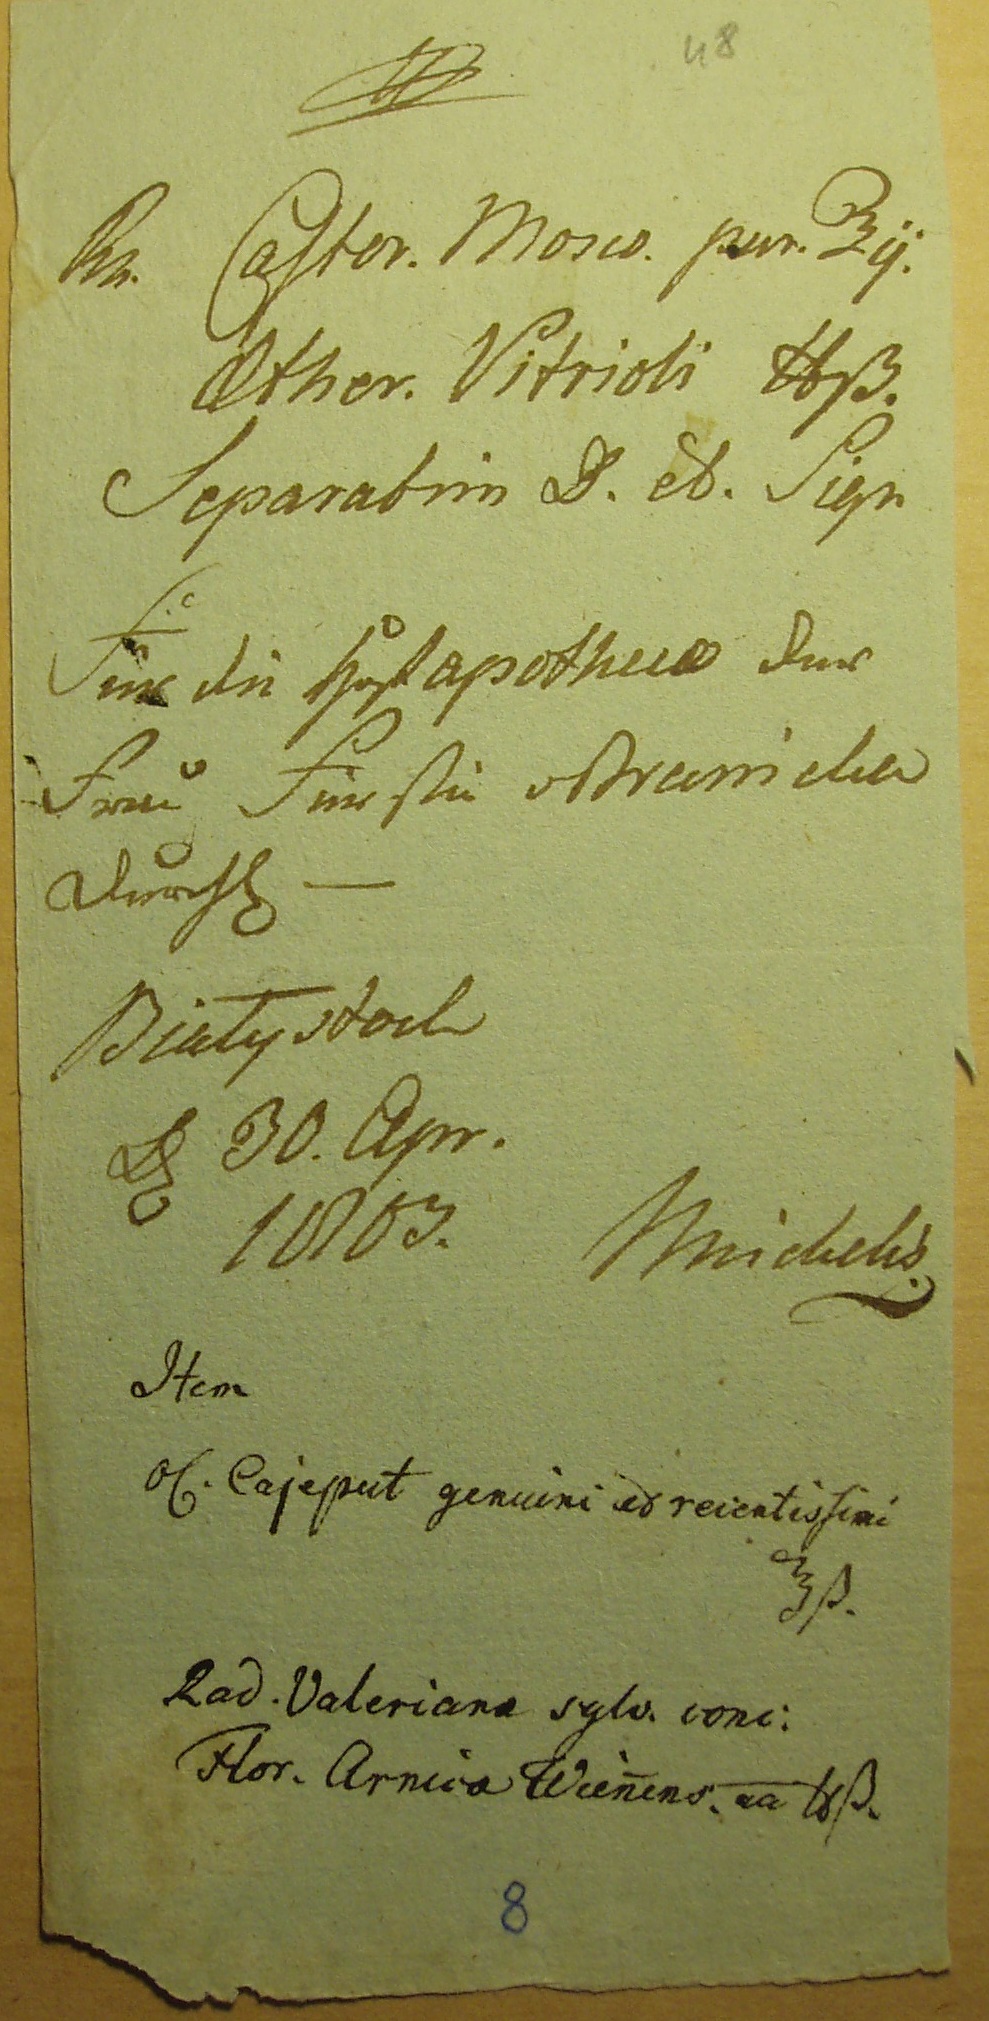 48
Rx. Castor. Mosco. pur. ℥ij.
Æther. Vitrioli ℔ß.
Separatim D. et. Sign
Für die Hofapotheca der
Frau Fürstin v Branicka
Durchl —
Białystock
D 30. Apr.
1803.
Michelis
Item
Ol. Cajeput genuini et recentissimi
℥ß.
Rad. Valeriana sylv. conc:
Flor. Arnica Wieñens. aa ℔ß.
8